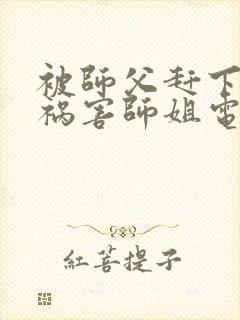 被師父赶下
禍害師姐電
紅菩提子